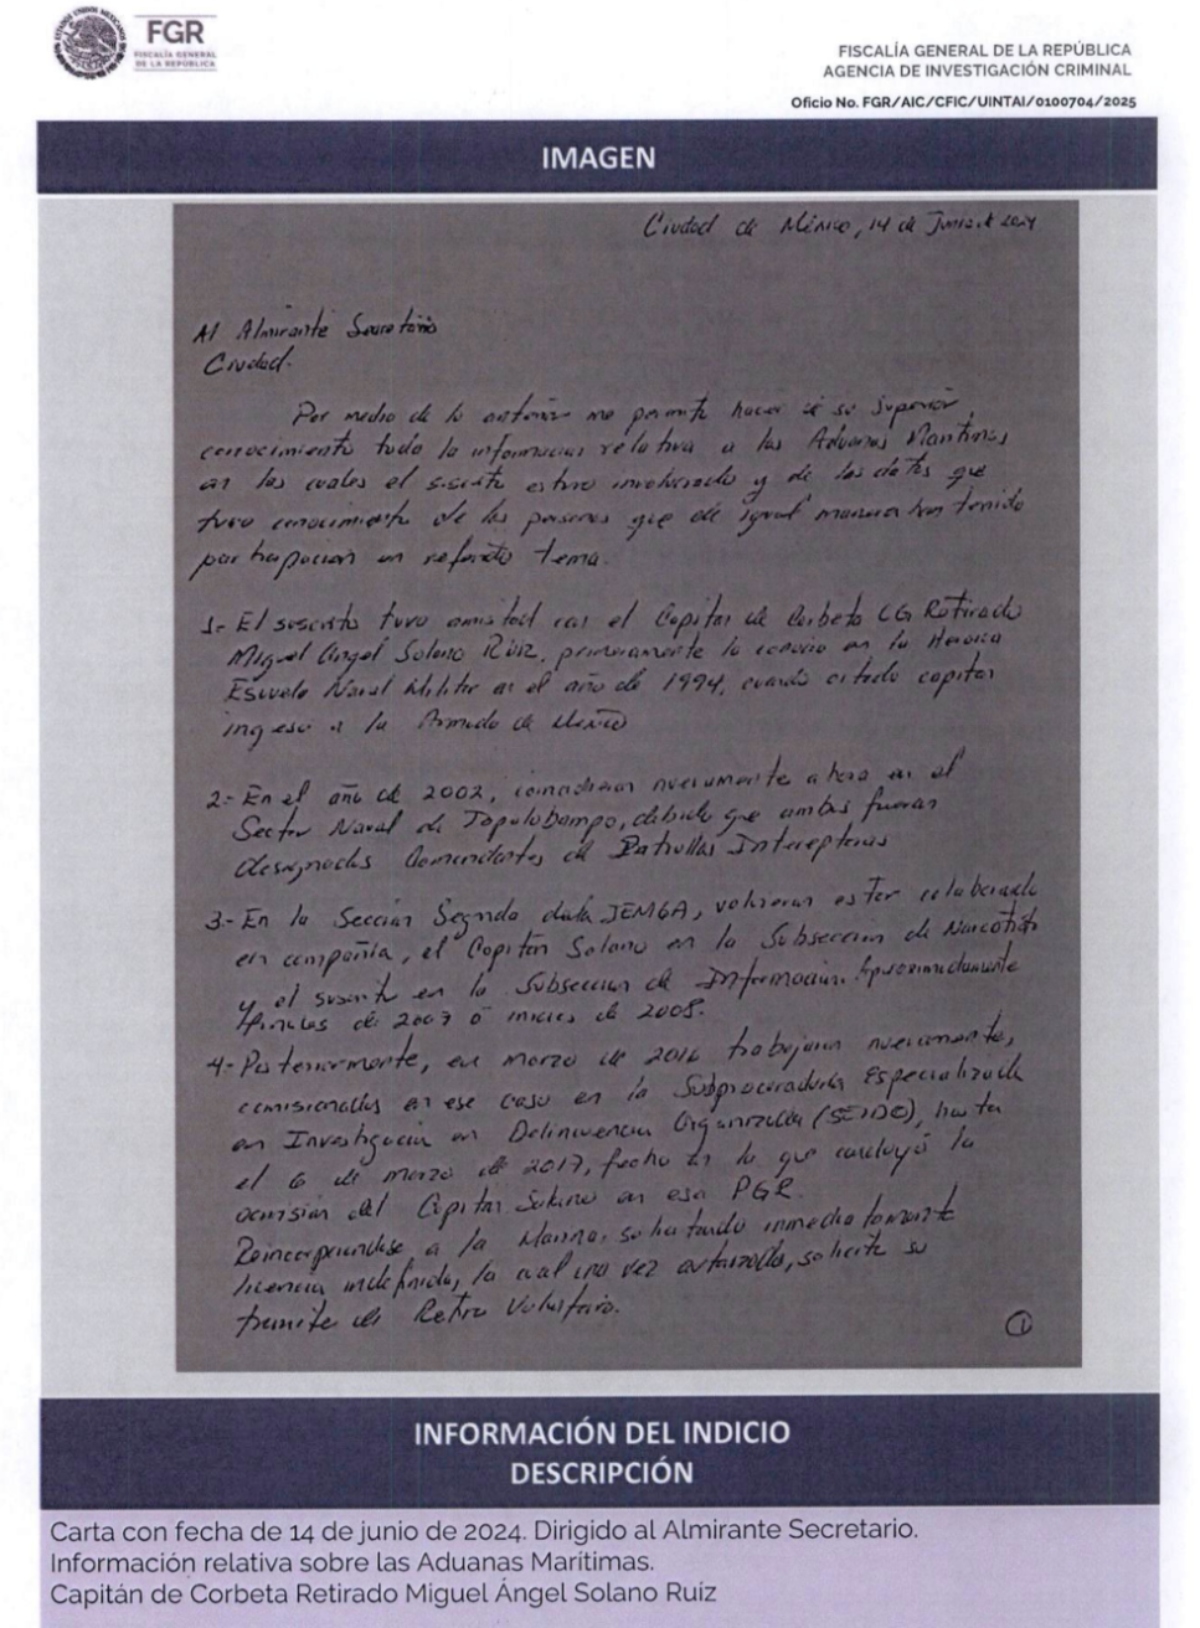 ESTADOS UNIDOS MEXICANOS
FGR
FISCALÍA GENERAL
DE LA REPÚBLICA
FISCALÍA GENERAL DE LA REPÚBLICA
AGENCIA DE INVESTIGACIÓN CRIMINAL
Oficio No. FGR/AIC/CFIC/UINTAI/0100704/2025
IMAGEN
Ciudad de México, 14 de Junio de 2024
Al Almirante Secretario
Ciudad.
Por medio de lo anterior me permito hacer de su superior
conocimiento toda la informacion relativa a las Aduanas Maritimas
en las cuales el suscrito estuvo involucrado y de los datos que
tuvo conocimiento de las personas que de igual manera han tenido
participacion en referido tema.
1.- El suscrito tuvo amistad con el Capitan de Corbeta CG Retirado
Miguel Angel Solano Ruiz, primeramente lo conocio en la Heroica
Escuela Naval Militar en el año de 1994, cuando citado capitan
ingreso a la Armada de México
2.- En el año de 2002, coincidieron nuevamente ahora en el
Sector Naval de Topolobampo, debido que ambos fueron
designados Comandantes de Patrullas Interceptoras
3.- En la Sección Segunda del JEMGA, volvieron estar colaborando
en compañia, el Capitán Solano en la Subseccion de Narcoticos
y el suscrito en la Subseccion de Informacion. Aproximadamente
finales de 2007 ó inicios de 2008.
4.- Posteriormente, en marzo de 2016 trabajaron nuevamente,
comisionados en ese caso en la Subprocuraduría Especializada
en Investigacion en Delincuencia Organizada (SEIDO), hasta
el 6 de marzo de 2017, fecha en la que concluyó la
comision del Capitan Solano en esa PGR.
Reincorporandose a la Marina, solicitando inmediatamente
licencia indefinida, la cual una vez autorizada, solicito su
tramite de Retiro Voluntario.
1
INFORMACIÓN DEL INDICIO
DESCRIPCIÓN
Carta con fecha de 14 de junio de 2024. Dirigido al Almirante Secretario.
Información relativa sobre las Aduanas Marítimas.
Capitán de Corbeta Retirado Miguel Ángel Solano Ruíz